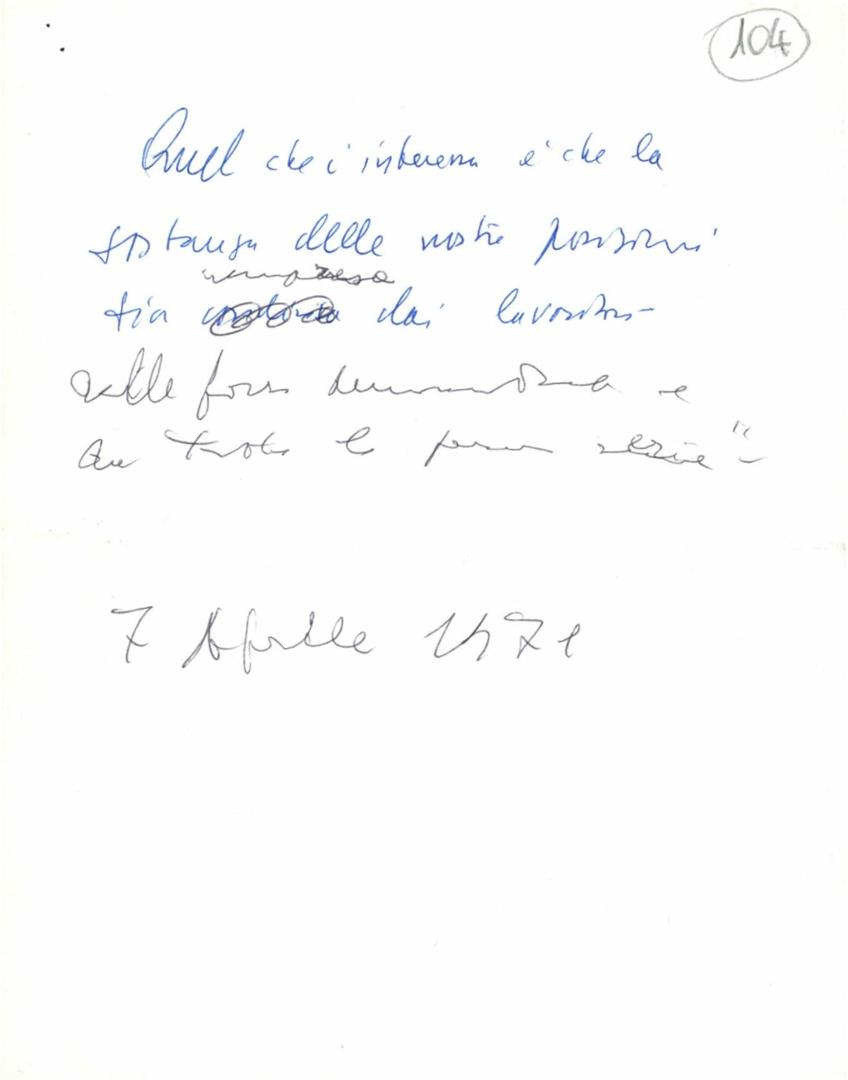 104
Quel che ci interessa è che la
sostanza delle nostre posizioni
compresa
sia dai lavoratori
dalle forze democratiche e
da tutte le persone serie"
7 Aprile 1971